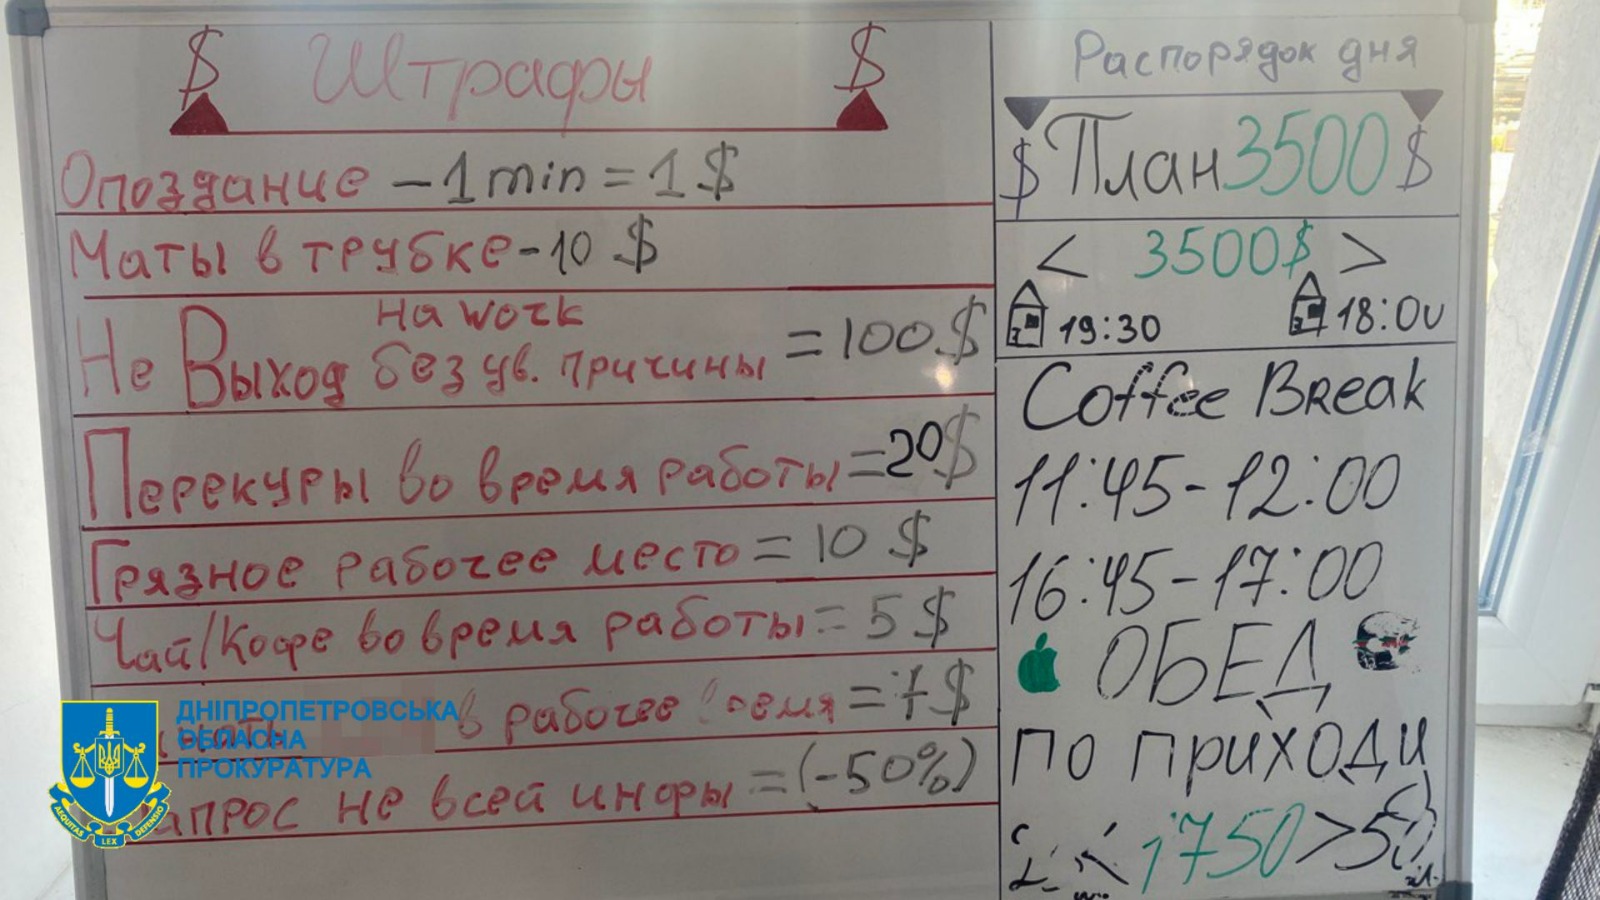 $ Штрафы $
Опоздание - 1 min = 1 $
Маты в трубке - 10 $
Не Выход на work без ув. причины = 100 $
Перекуры во время работы = 20 $
Грязное рабочее место = 10 $
Чай/Кофе во время работы = 5 $
в рабочее время = 7 $
не всей инфры = (-50%)
Распорядок дня
$ План 3500 $
< 3500$ >
19:30 18:00
Coffee Break
11:45 - 12:00
16:45 - 17:00
ОБЕД
по приходи
< 1750 >
ДНІПРОПЕТРОВСЬКА
ОБЛАСНА
ПРОКУРАТУРА
AEQUITAS LEX DEFENSIO